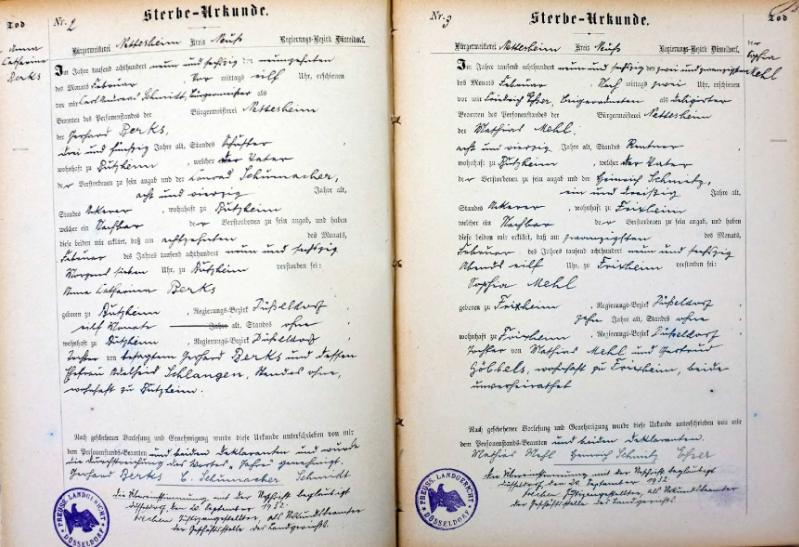 Nr. 2
Sterbe-Urkunde.
Tod
Anna
Catharina
Berks
Bürgermeisterei Nettesheim Kreis Neuß Regierungs-Bezirk Düsseldorf.
Im Jahre tausend achthundert neun und sechszig den neunzehnten
des Monats Februar Vor mittags eilf Uhr, erschienen
vor mir Carl Andreas Schmitt, Bürgermeister als
Beamten des Personenstandes der Bürgermeisterei Nettesheim
der Gerhard Berks,
drei und fünfzig Jahre alt, Standes Schuster
wohnhaft zu Butzheim, welcher der Vater
der Verstorbenen zu sein angab und der Conrad Schumacher,
acht und vierzig Jahre alt,
Standes Ackerer, wohnhaft zu Butzheim
welcher ein Nachbar der Verstorbenen zu sein angab, und haben
diese beiden mir erklärt, daß am achtzehnten des Monats,
Februar des Jahres tausend achthundert neun und sechszig
Morgens sieben Uhr, zu Butzheim verstorben sei:
Anna Catharina Berks
geboren zu Butzheim, Regierungs-Bezirk Düsseldorf
eilf Monate Jahre alt, Standes ohne
wohnhaft zu Butzheim, Regierungs-Bezirk Düsseldorf
Tochter von besagtem Gerhard Berks und dessen
Ehefrau Adelheid Schlangen, Standes ohne,
wohnhaft zu Butzheim.
Nach geschehener Vorlesung und Genehmigung wurde diese Urkunde unterschrieben von mir
dem Personenstands-Beamten und beiden Deklaranten und wurde
die Durchstreichung des Wortes "Jahre" genehmigt.
Gerhard Berks C. Schumacher Schmitt
Die Übereinstimmung mit der Urschrift beglaubigt
Düsseldorf, den 20. September 1932.
Justizangestellter, als Urkundsbeamter
der Geschäftsstelle des Landgerichts.
PREUSS. LANDGERICHT DÜSSELDORF
Nr. 3
Sterbe-Urkunde.
Tod
der
Sophia
Mehl
Bürgermeisterei Nettesheim Kreis Neuß Regierungs-Bezirk Düsseldorf.
Im Jahre tausend achthundert neun und sechszig den zwei und zwanzigsten
des Monats Februar Nach mittags zwei Uhr, erschienen
vor mir Friedrich Esser, Beigeordneten als delegirter
Beamten des Personenstandes der Bürgermeisterei Nettesheim
der Mathias Mehl,
acht und vierzig Jahre alt, Standes Rentner
wohnhaft zu Butzheim, welcher der Vater
der Verstorbenen zu sein angab und der Heinrich Schmitz,
ein und dreißig Jahre alt,
Standes Ackerer, wohnhaft zu Frixheim
welcher ein Nachbar der Verstorbenen zu sein angab, und haben
diese beiden mir erklärt, daß am zwanzigsten des Monats,
Februar des Jahres tausend achthundert neun und sechszig
Abends eilf Uhr, zu Frixheim verstorben sei:
Sophia Mehl
geboren zu Frixheim, Regierungs-Bezirk Düsseldorf
zehn Jahre alt, Standes ohne
wohnhaft zu Frixheim, Regierungs-Bezirk Düsseldorf
Tochter von Mathias Mehl und Gertrud
Göbbels, wohnhaft zu Frixheim, beide
unverheirathet
Nach geschehener Vorlesung und Genehmigung wurde diese Urkunde unterschrieben von mir
dem Personenstands-Beamten und beiden Deklaranten.
Mathias Mehl Heinrich Schmitz Esser
Die Übereinstimmung mit der Urschrift beglaubigt
Düsseldorf, den 20. September 1932
Justizangestellter, als Urkundsbeamter
der Geschäftsstelle des Landgerichts.
PREUSS. LANDGERICHT DÜSSELDORF